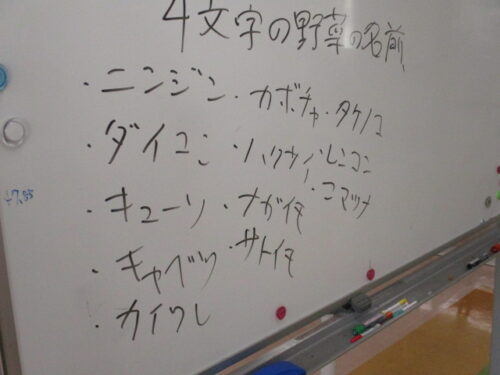 4文字の野菜の名前
・ニンジン ・カボチャ ・タケノコ
・ダイコン ・ハクサイ ・レンコン
・キューリ ・ナガイモ ・コマツナ
・キャベツ ・サトイモ
・カイワレ